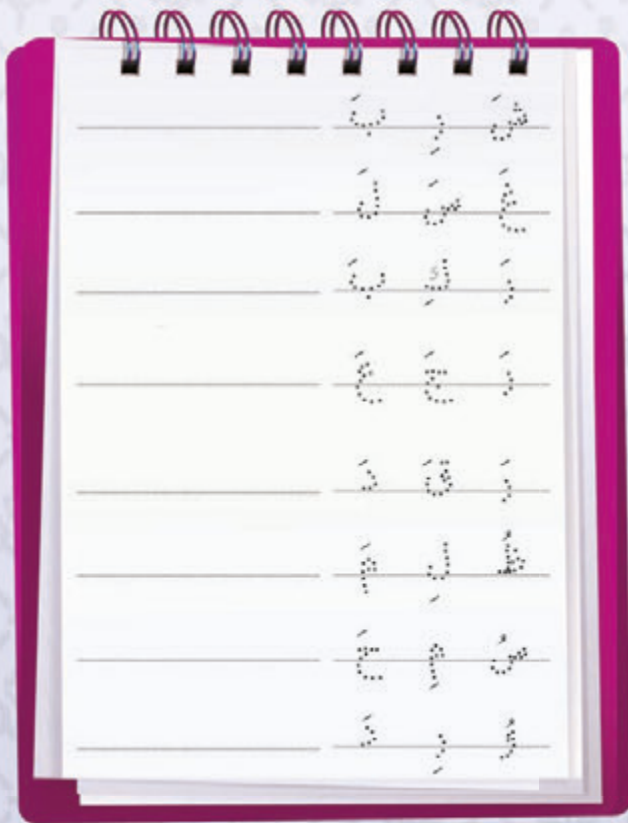 شَ رِ بَ
غَ سَ لَ
رَ كِ بَ
رَ جَ عَ
رَ قَ دَ
ظُ لِ مَ
سُ مِ حَ
وُ رِ دَ